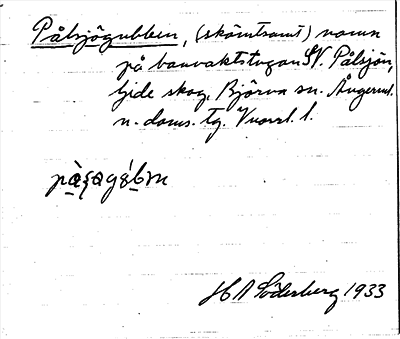 Pålsjögubben, (skämtsamt) namn
på banvaktstugan SV. Pålsjön,
Gide skog, Björna sn. Ångerml.
n. doms. tg. 1.
H A Söderberg 1933